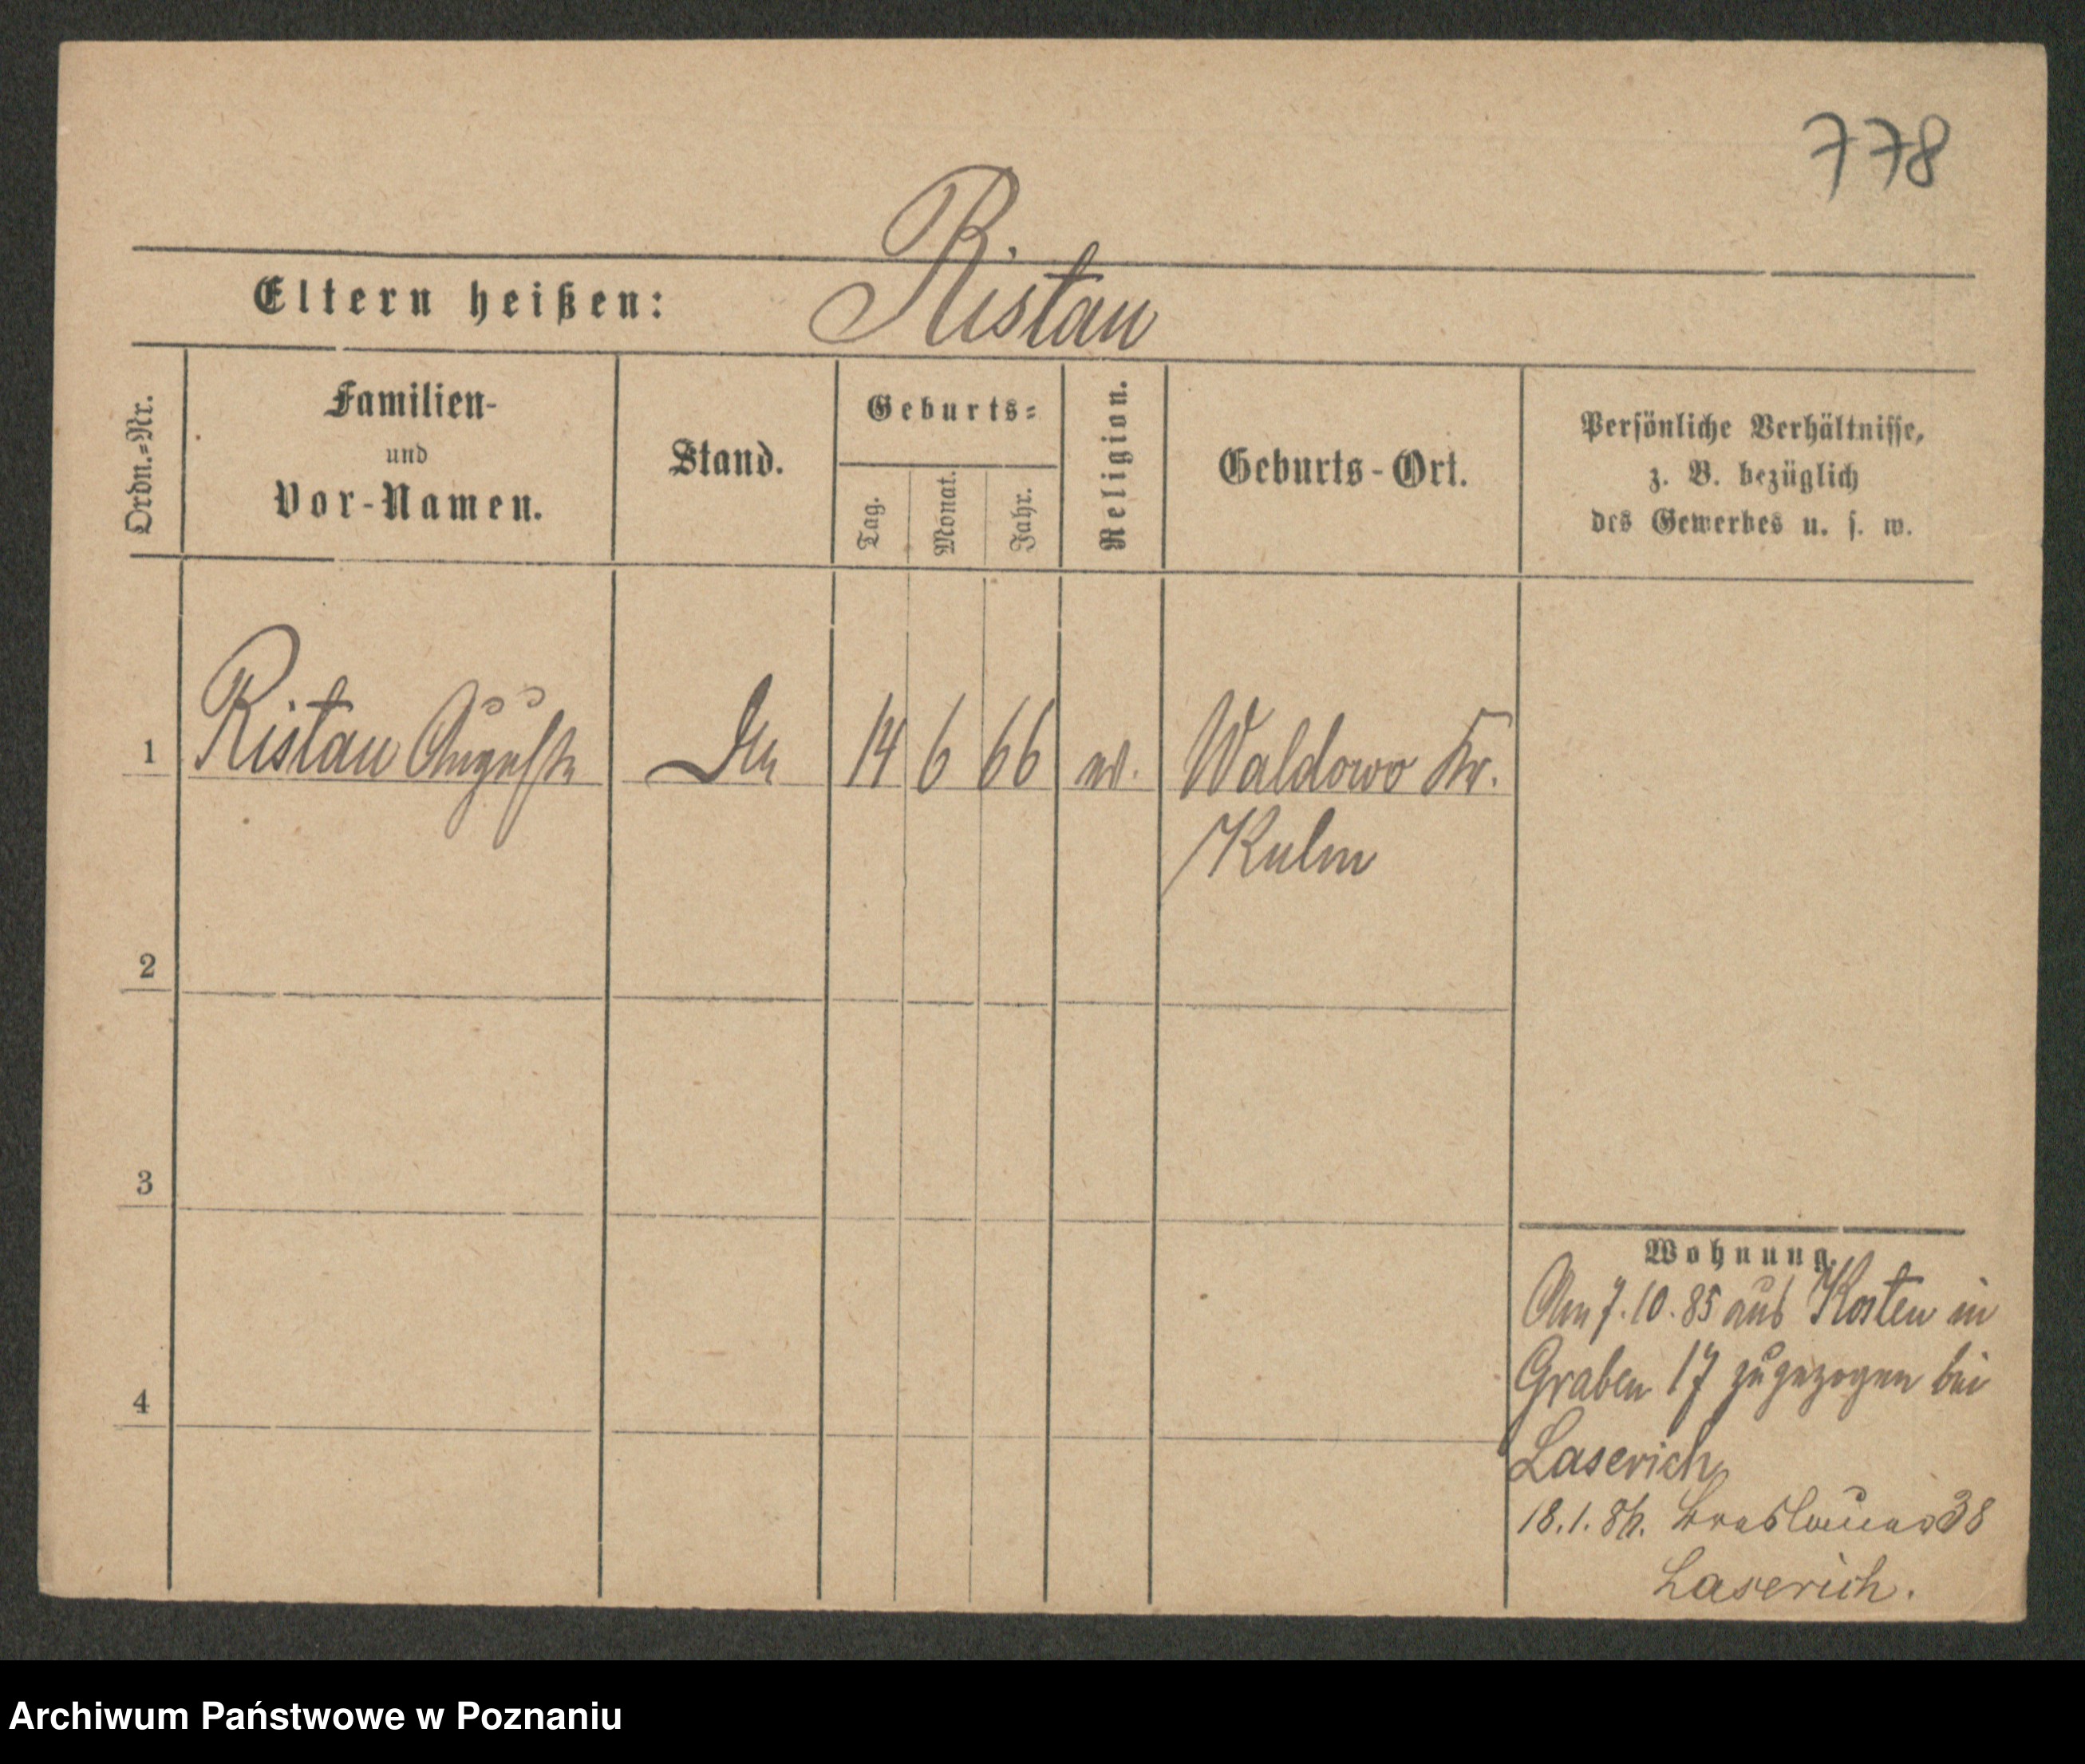 778
Ristau
Eltern heißen:
Ordn.=Nr.
Familien-
und
Vor-Namen.
Stand.
Geburts=
Tag.
Monat.
Jahr.
Religion.
Geburts-Ort.
Persönliche Verhältnisse,
z. B. bezüglich
des Gewerbes u. s. w.
1 Ristau Auguste 14 6 66 Waldowo Kr.
Kulm
2
3
4
Wohnung.
Am 7.10.85 aus Kosten in
Graben 17 zugezogen bei
Laserich
18.1.86. Breslauer 38
Laserich.
Archiwum Państwowe w Poznaniu